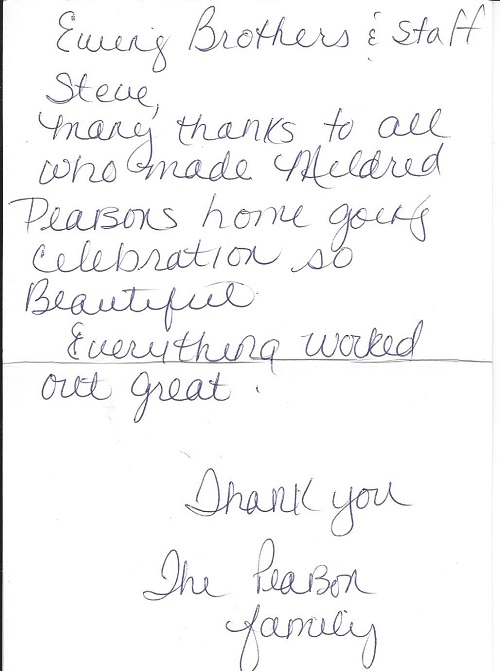 Ewing Brothers & Staff
Steve,
many thanks to all
who made Mildred
Pearsons home going
celebration so
Beautiful
Everything worked
out great.
Thank you
The Pearson
family